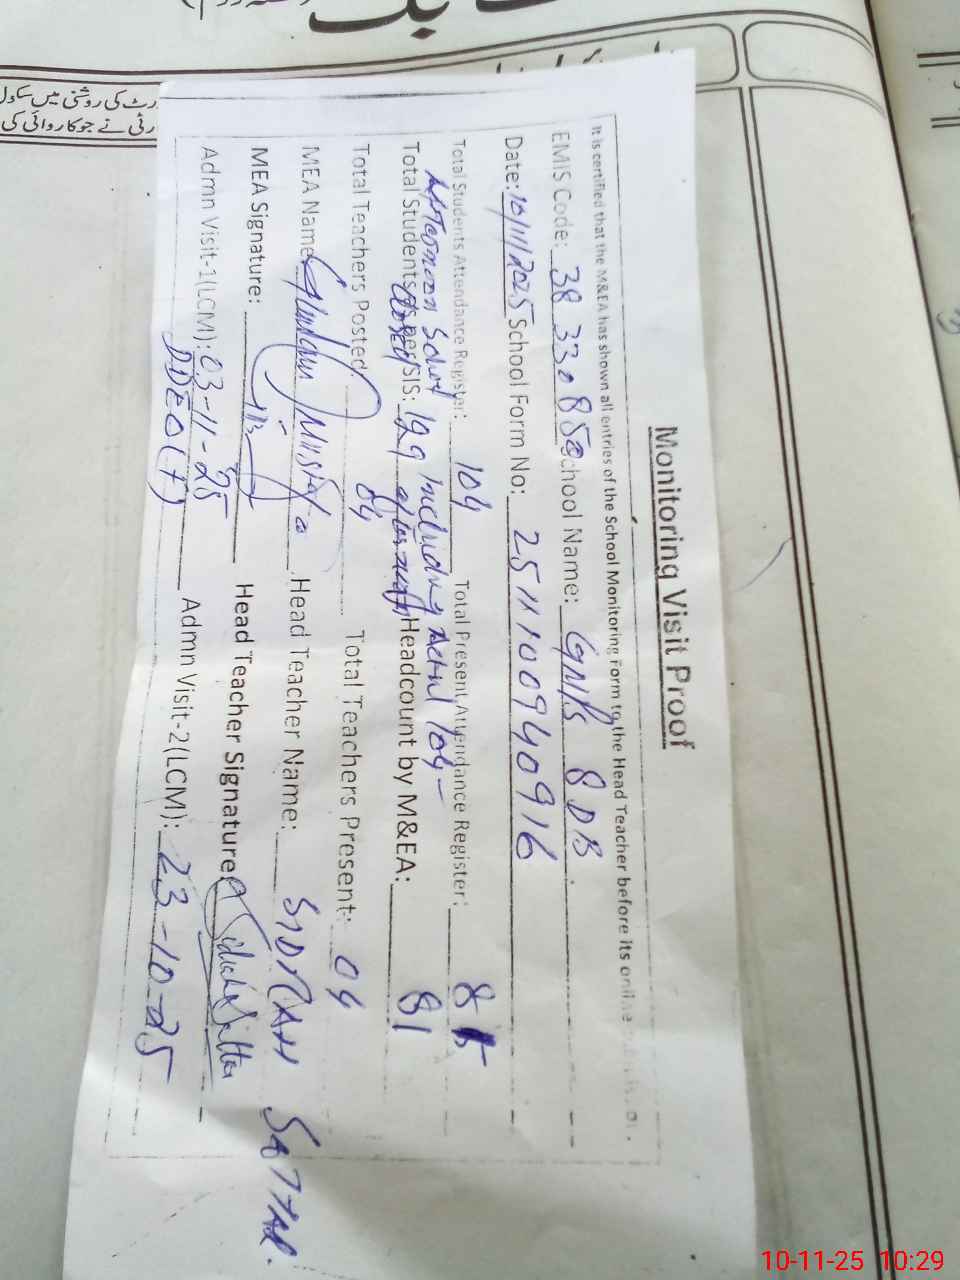 رٹ کی روشنی میں سکول
رٹی نے جو کاروائی کی
Monitoring Visit Proof
It is certified that the M&EA has shown all entries of the School Monitoring Form to the Head Teacher before its online
EMIS Code: 38330850 School Name: GMPS 8 DB
Date: 10/11/2025 School Form No: 2511100940916
Total Students Attendance Register: 104 Total Present Attendance Register: 8
Afternoon School 129 Including Actual 104-
Total Students as per SIS: Headcount by M&EA: 81
closed afternoon
Total Teachers Posted: 04 Total Teachers Present: 04
MEA Name: Head Teacher Name: SIDRAH SATTAR.
MEA Signature: Head Teacher Signature: Sidrah Sattar
Admn Visit-1(LCM): 03-11-25 Admn Visit-2(LCM): 23-10-25
DDEO(F)
10-11-25 10:29